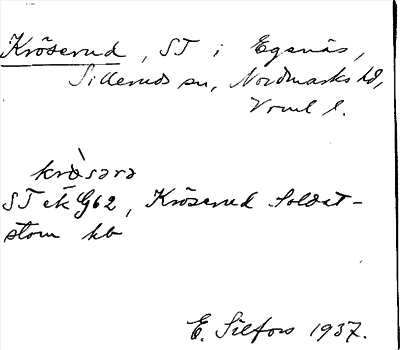 Kröserud, ST i Egenäs,
Silleruds sn, Nordmarks hd,
Vrml l.
krə̀sərə
ST ek G62, Kröserud Soldat-
stom kb
E. Silfors 1937.